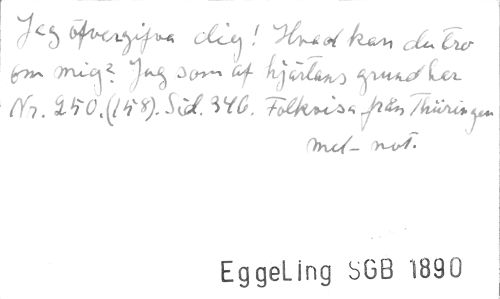 Jag öfvergifva dig! Hvad kan du tro
om mig? Jag som af hjärtans grund har
Nr. 250. (158). Sid. 346. Folkvisa från Thüringen
mel- not.
EggeLing SGB 1890